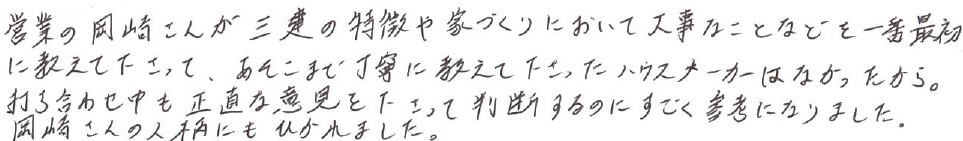 営業の岡崎さんが三建の特徴や家づくりにおいて大事なことなどを一番最初
に教えて下さって、あそこまで丁寧に教えて下さったハウスメーカーはなかったから。
打ち合わせ中も正直な意見を下さって判断するのにすごく参考になりました。
岡崎さんの人柄にもひかれました。